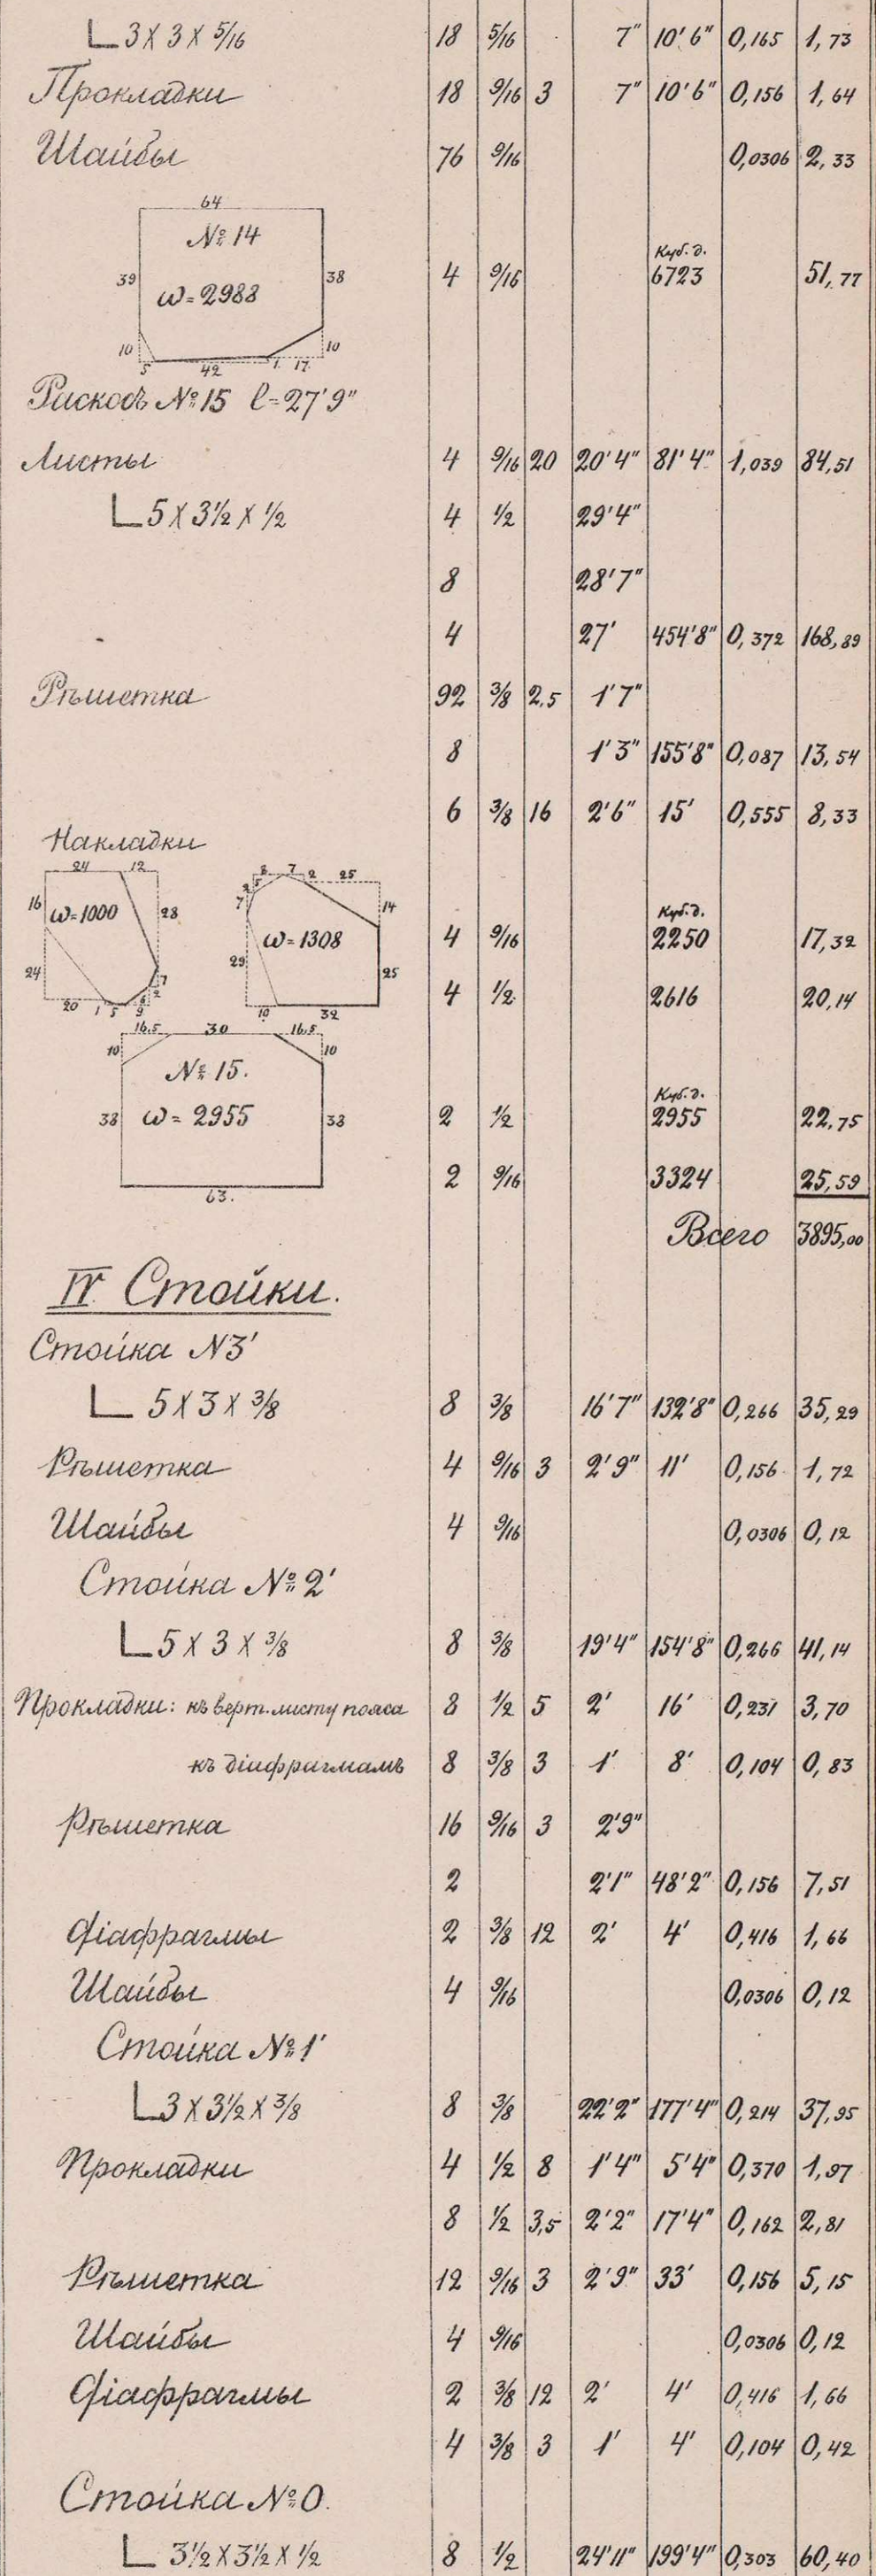 L 3 X 3 X 5/16 18 5/16 7" 10'6" 0,165 1,73
Прокладки 18 9/16 3 7" 10'6" 0,156 1,64
Шайбы 76 9/16 0,0306 2,33
64
№ 14
39 38
ω=2988
Куб.д.
4 9/16 6723 51,77
10 10
5 42 1 17
Раскосъ №15 l=27'9"
Листы 4 9/16 20 20'4" 81'4" 1,039 84,51
L 5 X 3½ X ½ 4 ½ 29'4"
8 28'7"
4 27' 454'8" 0,372 168,89
Рѣшетка 92 3/8 2,5 1'7"
8 1'3" 155'8" 0,087 13,54
6 3/8 16 2'6" 15' 0,555 8,33
Накладки
24 12
16 ω=1000 28
24 7
20 1 5 9 2
8 7 2 25
2 5
7 14
ω=1308
29 25
10 32
Куб.д.
4 9/16 2250 17,32
4 ½ 2616 20,14
16,5 30 16,5
10 10
№ 15.
38 ω=2955 38
63.
Куб.д.
2 ½ 2955 22,75
2 9/16 3324 25,59
Всего 3895,00
IV Стойки.
Стойка N3'
L 5 X 3 X 3/8 8 3/8 16'7" 132'8" 0,266 35,29
Рѣшетка 4 9/16 3 2'9" 11' 0,156 1,72
Шайбы 4 9/16 0,0306 0,12
Стойка №2'
L 5 X 3 X 3/8 8 3/8 19'4" 154'8" 0,266 41,14
Прокладки: къ верт. листу пояса 8 ½ 5 2' 16' 0,231 3,70
къ діафрагмамъ 8 3/8 3 1' 8' 0,104 0,83
Рѣшетка 16 9/16 3 2'9"
2 2'1" 48'2" 0,156 7,51
Діафрагмы 2 3/8 12 2' 4' 0,416 1,66
Шайбы 4 9/16 0,0306 0,12
Стойка №1'
L 3 X 3½ X 3/8 8 3/8 22'2" 177'4" 0,214 37,95
Прокладки 4 ½ 8 1'4" 5'4" 0,370 1,97
8 ½ 3,5 2'2" 17'4" 0,162 2,81
Рѣшетка 12 9/16 3 2'9" 33' 0,156 5,15
Шайбы 4 9/16 0,0306 0,12
Діафрагмы 2 3/8 12 2' 4' 0,416 1,66
4 3/8 3 1' 4' 0,104 0,42
Стойка №0.
L 3½ X 3½ X ½ 8 ½ 24'11" 199'4" 0,303 60,40